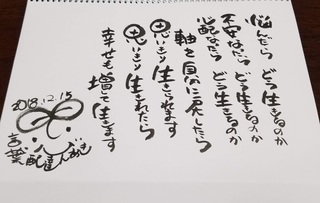 悩んだら どう生きるのか
不安なら どう生きるのか
心配なら どう生きるのか
軸を自分に戻したら
思いきり生きられます
思いきり生きれたら
幸せも増て生きます
2018.12.15
言葉
配達人